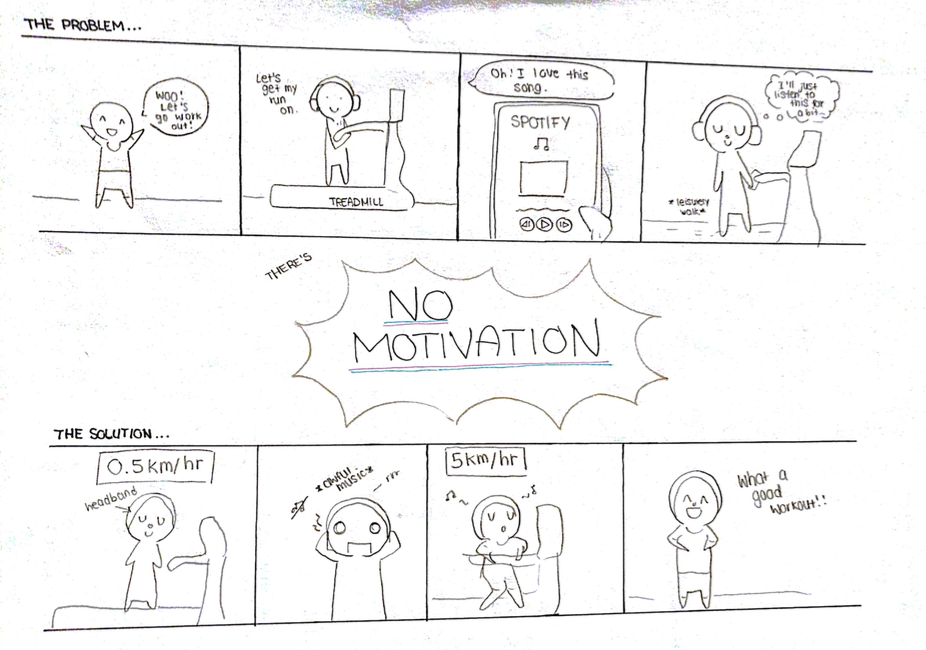 THE PROBLEM...
WOO!
Let's
go work
out!
Let's
get my
run
on.
TREADMILL
Oh! I love this
song.
SPOTIFY
I'll just
listen to
this for
a bit~
*leisurely
walk*
THERE'S
NO
MOTIVATION
THE SOLUTION...
0.5km/hr
headband
*awful
music*
5km/hr
What a
good
workout!!